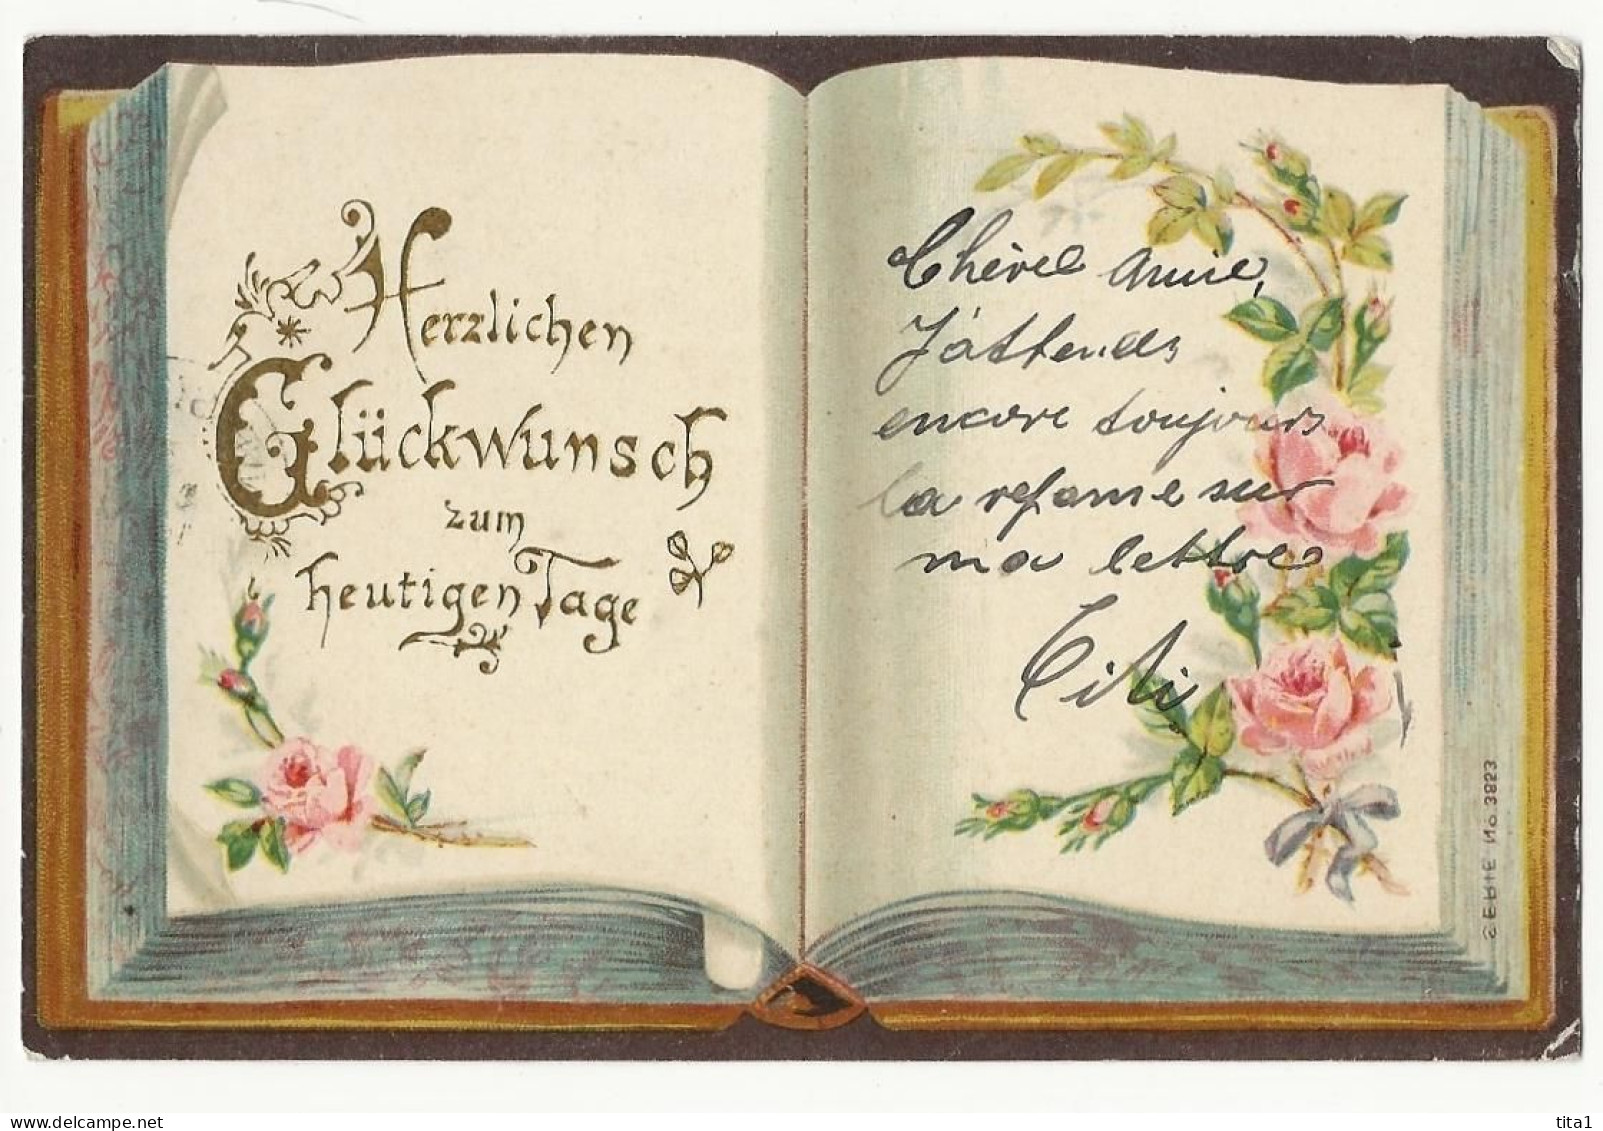 Herzlichen
Glückwunsch
zum
heutigen Tage
Chère Amie,
J'attends
encore toujours
la réponse sur
ma lettre
Titi
SERIE No 3823
tita1